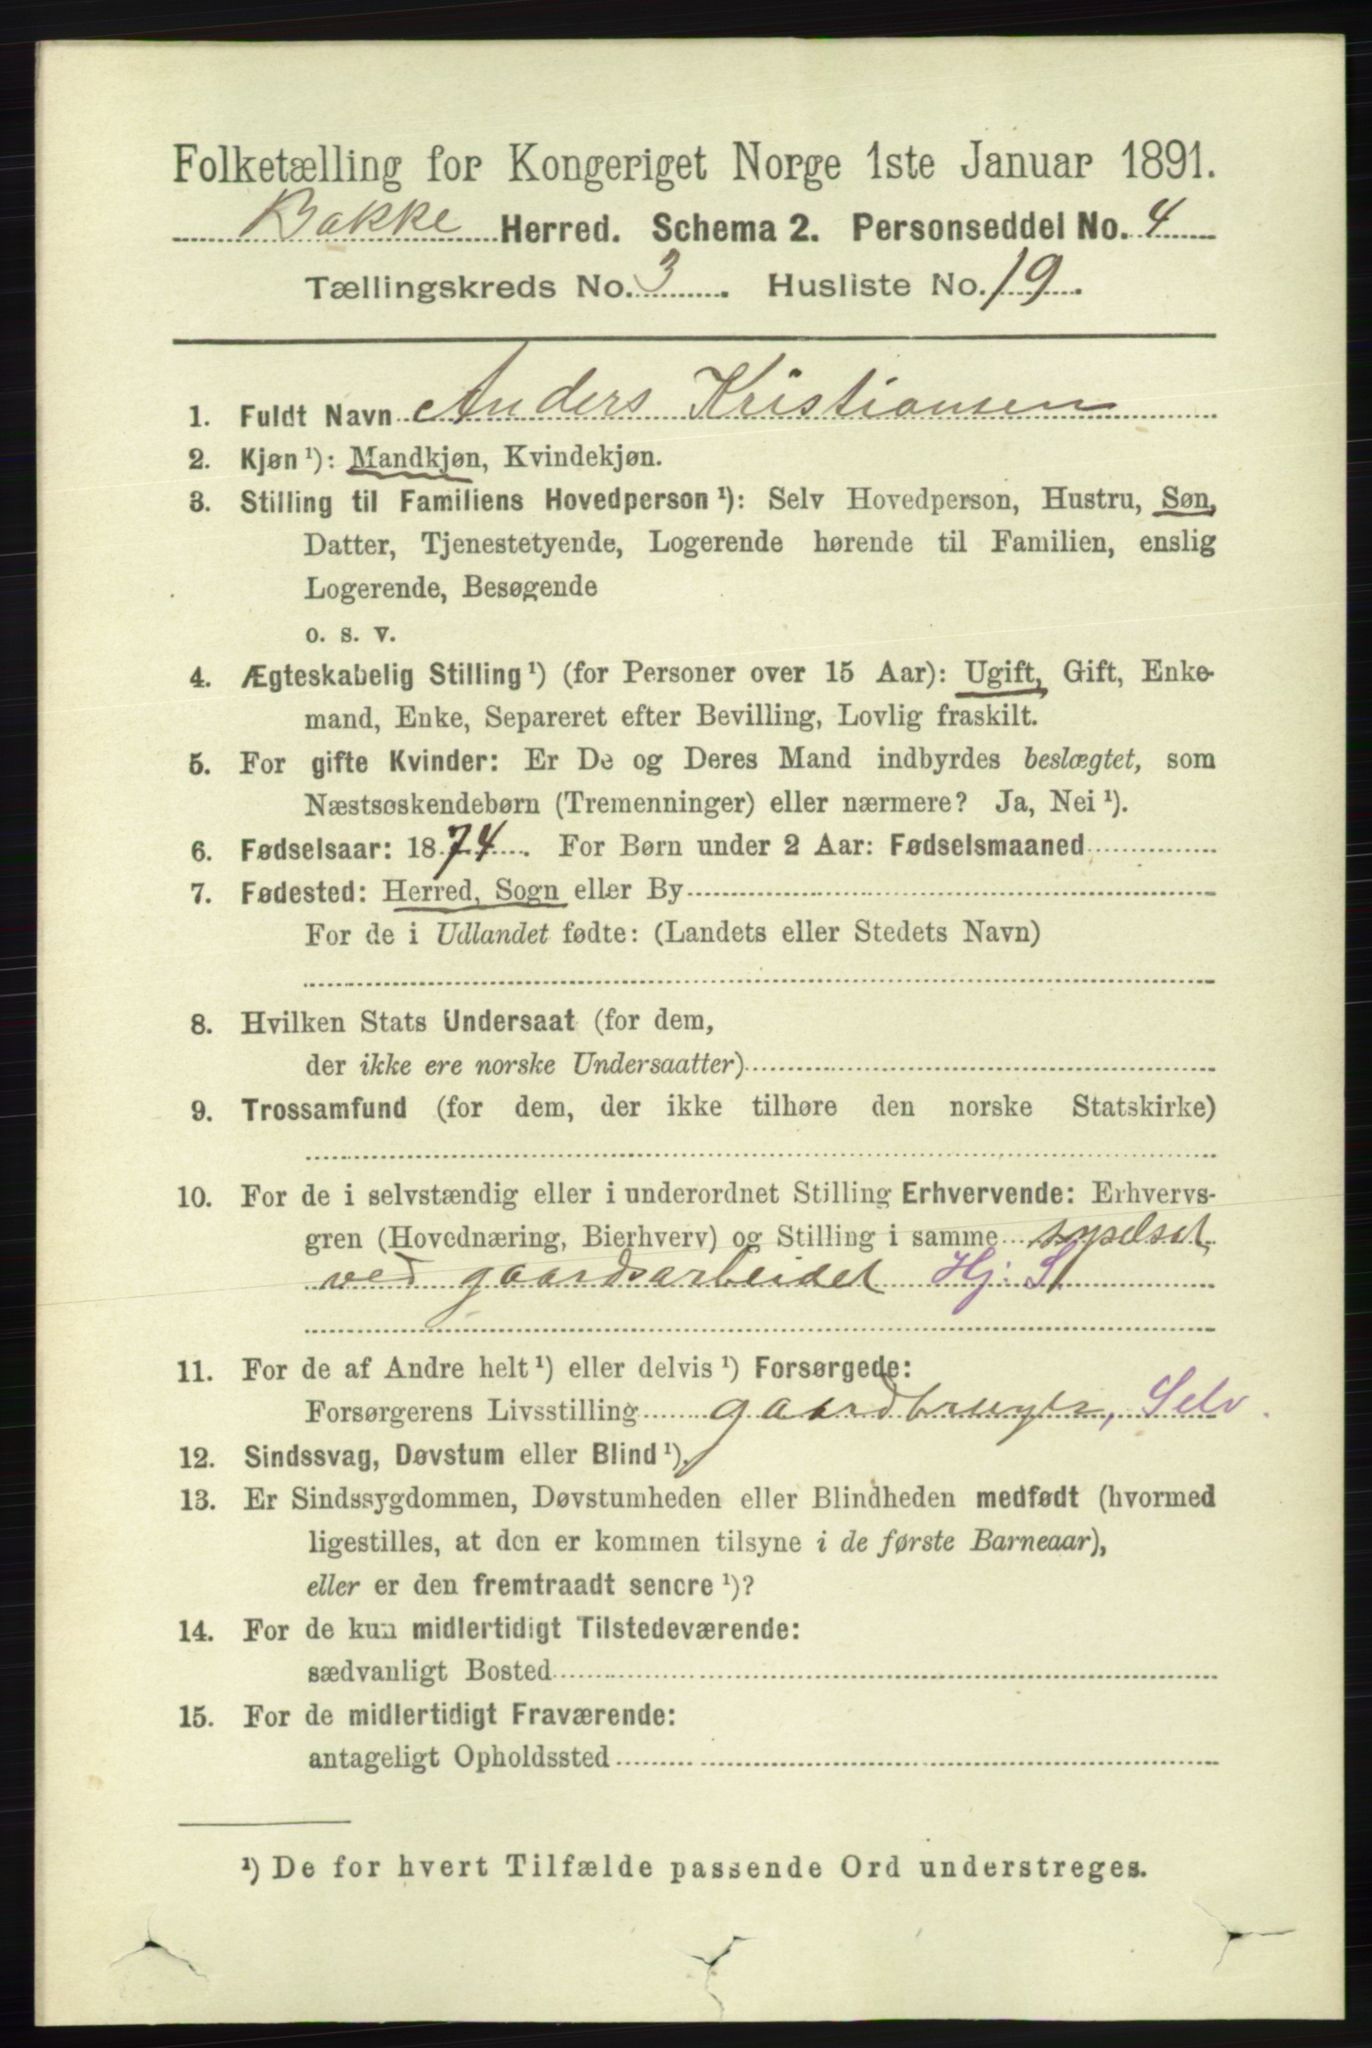 Folketælling for Kongeriget Norge 1ste Januar 1891.
Bakke Herred. Schema 2. Personseddel No. 4
Tællingskreds No. 3. Husliste No. 19.
1. Fuldt Navn Anders Kristiansen
2. Kjøn ¹): Mandkjøn, Kvindekjøn.
3. Stilling til Familiens Hovedperson ¹): Selv Hovedperson, Hustru, Søn,
Datter, Tjenestetyende, Logerende hørende til Familien, enslig
Logerende, Besøgende
o. s. v.
4. Ægteskabelig Stilling ¹) (for Personer over 15 Aar): Ugift, Gift, Enke-
mand, Enke, Separeret efter Bevilling, Lovlig fraskilt.
5. For gifte Kvinder: Er De og Deres Mand indbyrdes beslægtet, som
Næstsøskendebørn (Tremenninger) eller nærmere? Ja, Nei ¹).
6. Fødselsaar: 1874. For Børn under 2 Aar: Fødselsmaaned
7. Fødested: Herred, Sogn eller By
For de i Udlandet fødte: (Landets eller Stedets Navn)
8. Hvilken Stats Undersaat (for dem,
der ikke ere norske Undersaatter)
9. Trossamfund (for dem, der ikke tilhøre den norske Statskirke)
10. For de i selvstændig eller i underordnet Stilling Erhvervende: Erhvervs-
gren (Hovednæring, Bierhverv) og Stilling i samme syselsat
ved gaardsarbeidet Hj: S
11. For de af Andre helt ¹) eller delvis ¹) Forsørgede:
Forsørgerens Livsstilling gaardbruger, Selv.
12. Sindssvag, Døvstum eller Blind ¹),
13. Er Sindssygdommen, Døvstumheden eller Blindheden medfødt (hvormed
ligestilles, at den er kommen tilsyne i de første Barneaar),
eller er den fremtraadt senere ¹)?
14. For de kun midlertidigt Tilstedeværende:
sædvanligt Bosted
15. For de midlertidigt Fraværende:
antageligt Opholdssted
¹) De for hvert Tilfælde passende Ord understreges.